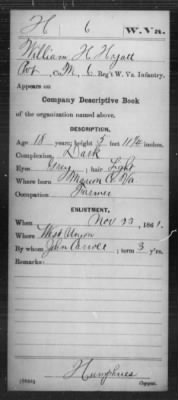 H 6 W. Va.
William H Hyatt
Pvt, Co. M, 6 Reg't W. Va. Infantry.
Appears on
Company Descriptive Book
of the organization named above.
DESCRIPTION.
Age 18 years; height 5 feet 11 3/4 inches.
Complexion Dark
Eyes Grey; hair Light
Where born Marion Co Va
Occupation Farmer
ENLISTMENT.
When Nov 23, 1861.
Where West Union
By whom John Carroll; term 3 y'rs.
Remarks:
Humphries
Copyist.